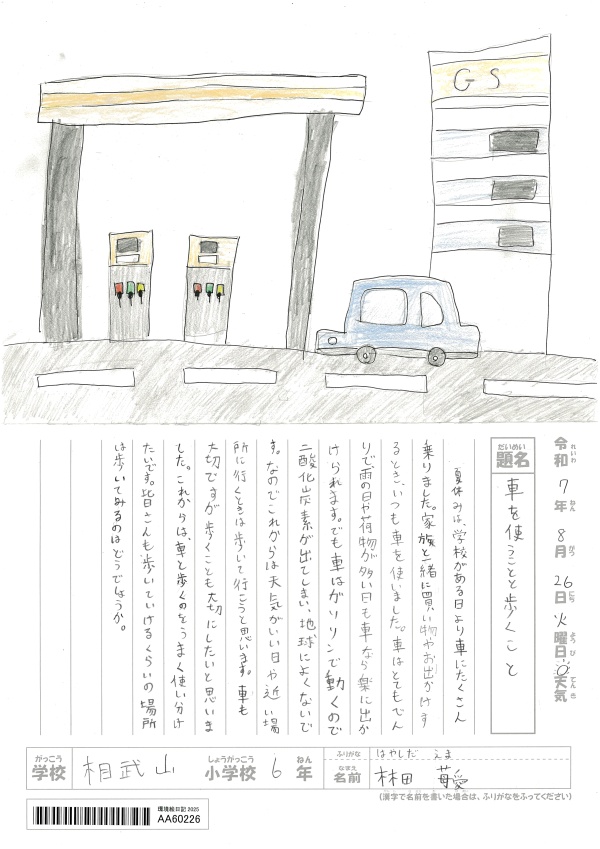 GS
令和 7年 8月 26日 火曜日 天気
れいわ ねん がつ にち ようび てんき
だいめい
題名 車を使うことと歩くこと
夏休みは、学校がある日より車にたくさん
乗りました。家族と一緒に買い物やお出かけす
るとき、いつも車を使いました。車はとてもべん
りで、雨の日や荷物が多い日も車なら楽に出か
けられます。でも車はガソリンで動くので
二酸化炭素が出てしまい、地球によくないで
す。なのでこれからは天気がいい日や近い場
所に行くときは歩いて行こうと思います。車も
大切ですが歩くことも大切にしたいと思いま
した。これからは、車と歩くのをうまく使い分け
たいです。皆さんも歩いていけるくらいの場所
は歩いてみるのはどうでしょうか。
がっこう しょうがっこう ねん
学校 相武山 小学校 6年
ふりがな はやしだ えま
なまえ
名前 林田
(漢字で名前を書いた場合は、ふりがなをふってください)
環境絵日記2025
AA60226